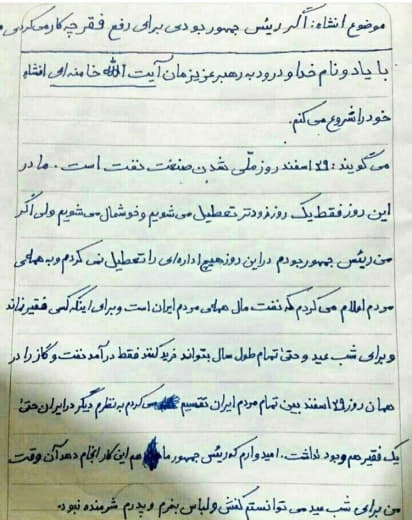 موضوع انشاء: اگر رئیس جمهور بودی برای رفع فقر چه کار می‌کردی
با یاد و نام خدا و درود به رهبر عزیزمان آیت الله خامنه‌ای انشاء
خود را شروع می‌کنم.
می‌گویند: ۲۹ اسفند روز ملّی شدن صنعت نفت است. ما در
این روز فقط یک روز زودتر تعطیل می‌شویم و خوشحال می‌شویم ولی اگر
من رئیس جمهور بودم در این روز هیچ اداره‌ای را تعطیل نمی‌کردم و به همه‌ی
مردم اعلام می‌کردم که نفت مال همه‌ی مردم ایران است و برای اینکه کسی فقیر نماند
و برای شب عید و حتی تمام طول سال بتواند خرید کنند فقط درآمد نفت و گاز را در
همان روز ۲۹ اسفند بین تمام مردم ایران تقسیم می‌کردم به نظرم دیگر در ایران حتی
یک فقیر هم وجود نداشت. امیدوارم که رئیس جمهور ما هم این کار انجام دهد آن وقت
من برای شب عید می توانستم کفش و لباس بخرم و پدرم شرمنده نبود.